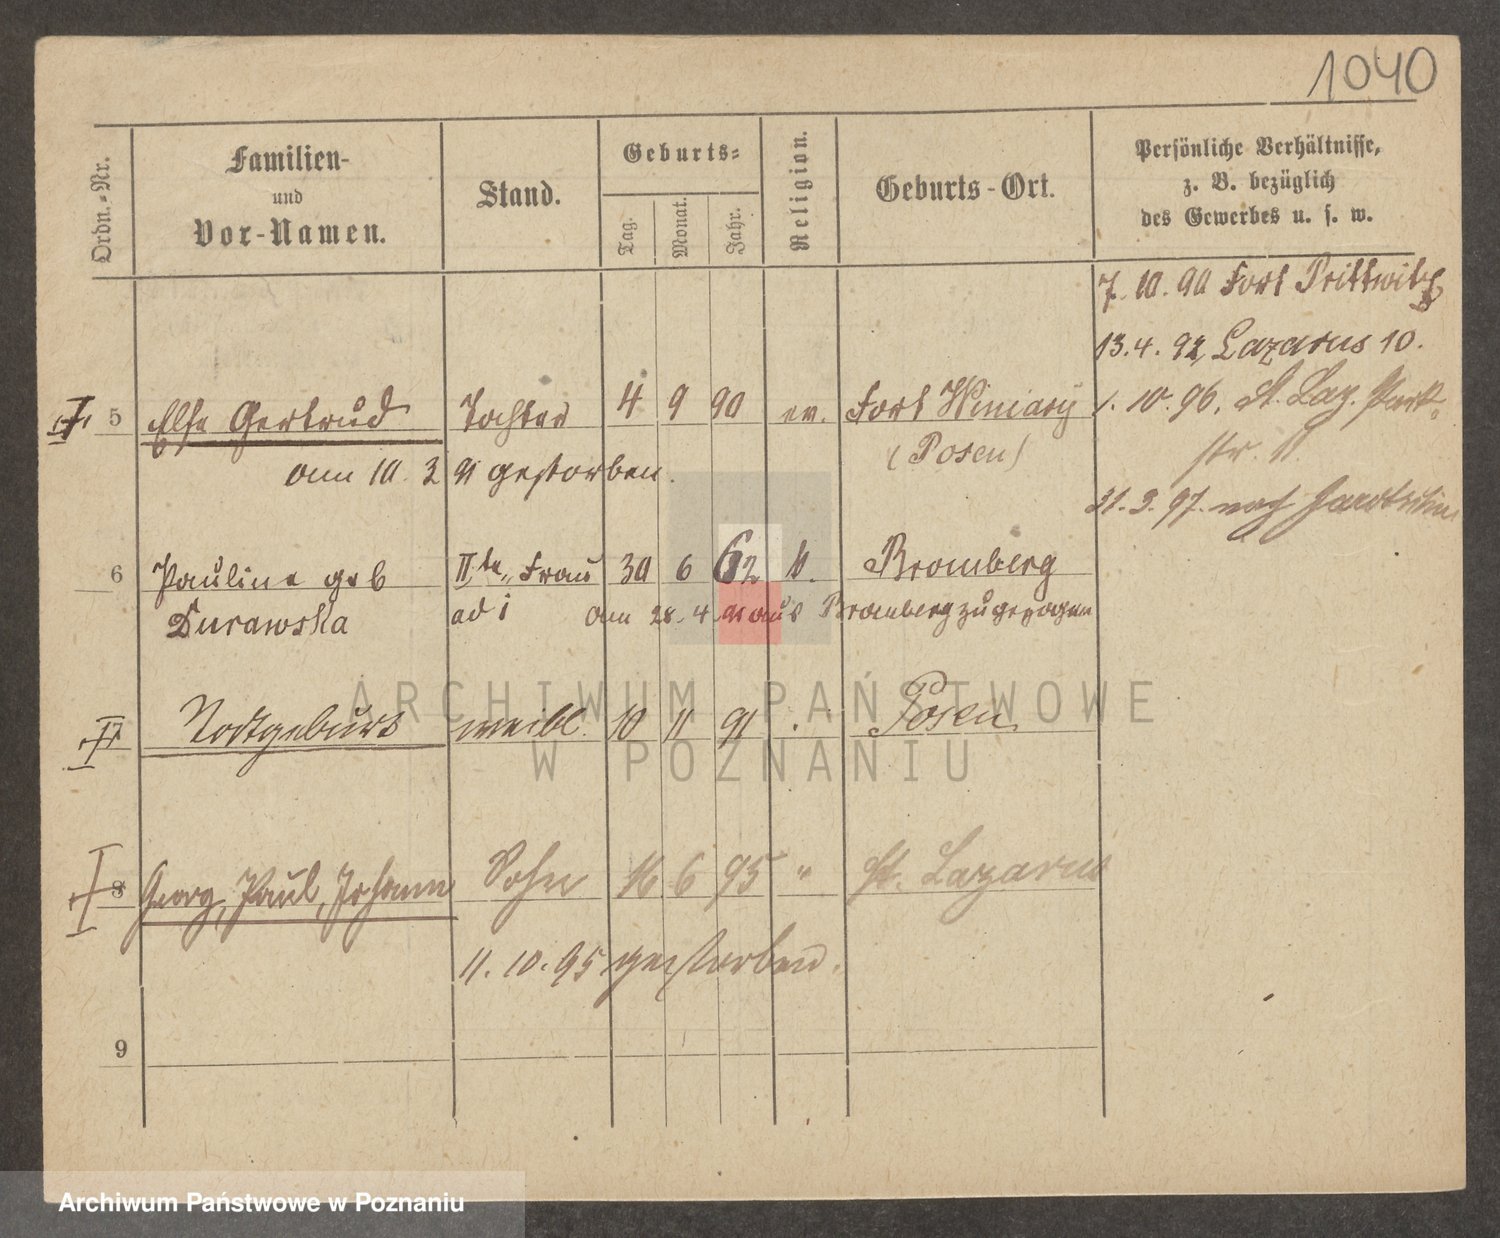 1040
Ordn.-Nr.
Familien-
und
Vor-Namen.
Stand.
Geburts-
Tag.
Monat.
Jahr.
Religion.
Geburts-Ort.
Persönliche Verhältnisse,
z. B. bezüglich
des Gewerbes u. s. w.
7. 10. 90 Fort Prittwitz
13. 4. 92 Lazarus 10.
5 Else Gertrud Tochter 4 9 90 ev. Fort Winiary 1. 10. 96. St. Laz. Park-
(Posen) str. 11.
am 10. 3 91 gestorben.
31. 3. 97. nach
6 Pauline geb IIte Frau 30 6 62 k. Bromberg
Durawska ad 1 am 28. 4. 91 aus Bromberg zugezogen
7 Todtgeburt weibl. 10 11 91 . Posen
8 Georg, Paul, Johann Sohn 16 6 95 " St. Lazarus
11. 10. 95 gestorben.
9
ARCHIWUM PAŃSTWOWE
W POZNANIU
Archiwum Państwowe w Poznaniu